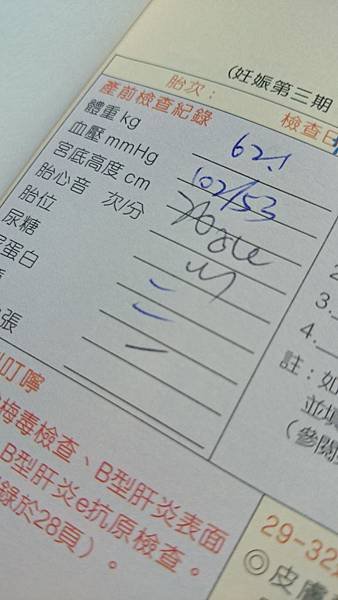 (妊娠第三期
胎次：
檢查日
產前檢查紀錄
體重 kg 62.1
血壓 mmHg 102/53
宮底高度 cm
胎心音 次/分
胎位
尿糖
蛋白
張
叮嚀
梅毒檢查、B型肝炎表面
B型肝炎e抗原檢查。
錄於28頁）。
3.
4.
註：如
並填
（參閱
29-32
◎皮膚